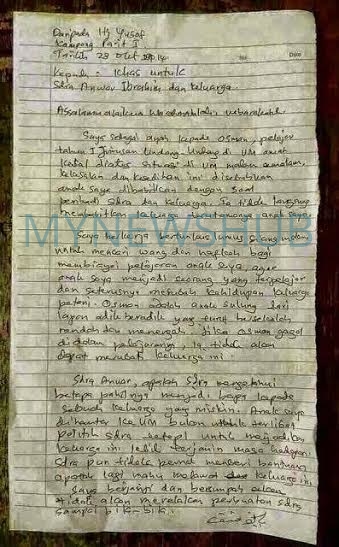 Daripada Hj Yusof
Kampong Parit 1
Tarikh 28 Okt 2014
Kepada : Khas untuk
Sdra Anwar Ibrahim dan keluarga
Assalamualaikum
Saya sebagai ayah kepada Osman, pelajar
tahun 1 jurusan Undang Undang di UM amat
kesal diatas situasi di UM malam
kekesalan dan kesedihan ini disebabkan
anak saya dibabitkan dengan soal
peribadi Sdra dan keluarga. Ia tidak langsung
membabitkan keluarga anak saya
MYNEWSHUB
Saya bekerja bertungkus lumus siang malam
untuk mencari wang dan nafkah bagi
membiayai pelajaran anak saya agar
anak saya menjadi seorang yang terpelajar
dan seterusnya merubah kehidupan keluarga
petani. Osman adalah anak sulung dari
lapan adik beradik yang bersekolah
rendah dan menengah. Jika Osman gagal
didalam pelajarannya, ia tidak akan
dapat merubah keluarga ini.
Sdra Anwar, apakah Sdra mengetahui
betapa peritnya menjadi bapa kepada
sebuah keluarga yang miskin. Anak saya
dihantar ke UM bukan untuk terlibat
politik sdra tetapi untuk menjadikan
keluarga ini lebih terjamin masa hadapan.
Sdra pun tidak pernah memberi bantuan
apatah lagi mahu melawat keluarga ini
Saya berjanji dan bersumpah
tidak akan merelakan perbuatan sdra
sampai bila-bila.